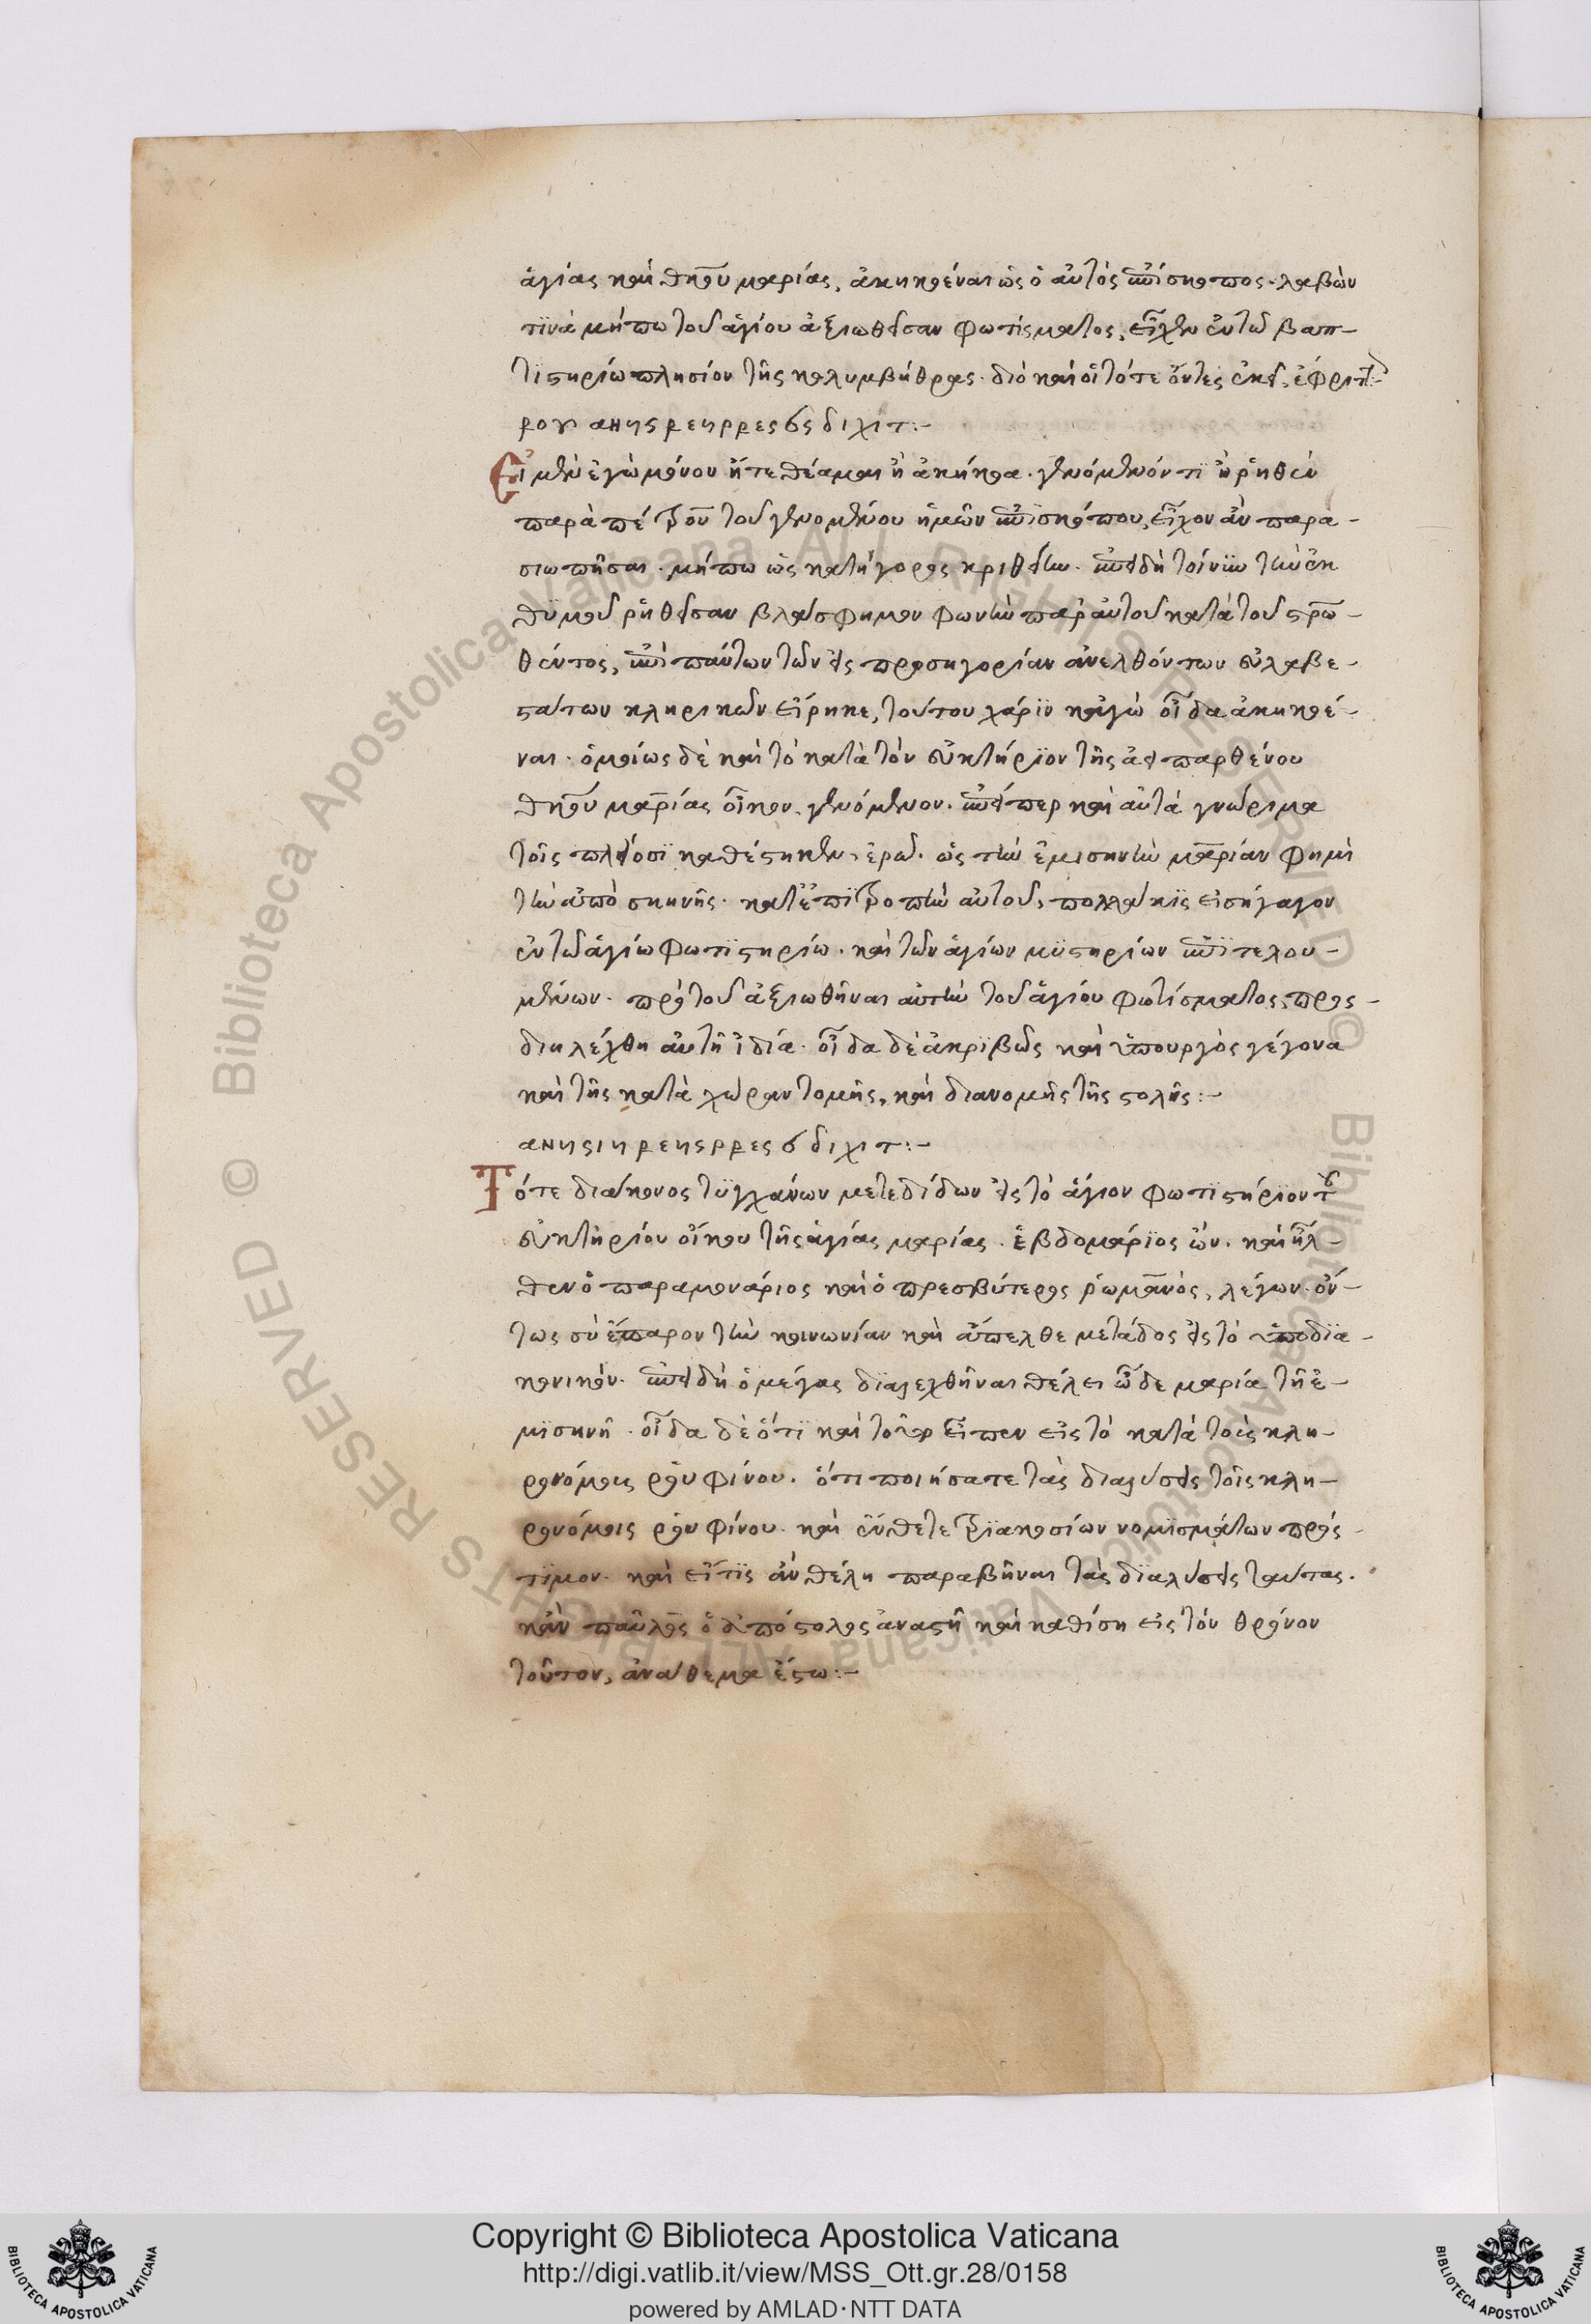 ἁγίας καὶ θ̅κ̅ου μαρίας, ἀκηκοέναι ὡς ὁ αὐτὸς ἐπίσκοπος. λαβὼν
τϊνὰ μήπω τοῦ ἁγίου ἀξιωθεῖσαν φωτίσματος, εἶχεν ἐν τῶ βαπ-
τιστηρίω πλησίον τῆς κολυμβήθρας. διὸ καὶ οἱ τότε ὄντες ἐκεῖ,
δ ι χ ι τ :-
Εἰ μὲν ἐγὼ μόνον ἤτεθέαμαι ἢ ἀκήκοα. γενόμενόν τϊ ἢ ῥηθὲν
παρὰ πέτρου τοῦ γενομένου ἡμῶν ἐπισκόπου, εἶχον ἂν παρα-
σιωπῆσαι. μήπω ὡς κατήγορος κριθείην. ἐπειδὴ τοίνϋν τὴν ἐκ
θϋμοῦ ῥηθεῖσαν βλάσφημον φωνὴν παρ' αὐτοῦ κατὰ τοῦ σ̅ρ̅ω-
θέντος, ἐπὶ πάντων τῶν εἰς προσηγορίαν ἀνελθόντων εὐλαβε-
στάτων κληρικῶν εἴρηκε, τούτου χάρϊν κἀγὼ οἶδα ἀκηκοέ-
ναι. ὁμοίως δὲ καὶ τὸ κατὰ τὸν εὐκτήρϊον τῆς ἀειπαρθένου
θ̅κ̅ου μαρίας οἶκον, γενόμενον. ἐπείπερ καὶ αὐτὰ γνώριμα
τοῖς πλείοσϊ καθέστηκεν, ἐρῶ. ὡς τὴν ἐμισηνὴν μαρίαν φημὶ
τὴν ἀπὸ σκηνῆς. κατ' ἐπϊτροπὴν αὐτοῦ, πολλάκϊς εἰσήγαγον
ἐν τῶ ἁγίω φωτϊστηρίω. καὶ τῶν ἁγίων μϋστηρίων ἐπϊτελου-
μένων. πρὸ τοῦ ἀξιωθῆναι αὐτὴν τοῦ ἁγίου φωτίσματος, προς-
διηλέχθη αὐτῆ ἰδία. οἶδα δὲ ἀκρϊβῶς καὶ ὑπουργὸς γέγονα
καὶ τῆς κατὰ χώραν τομῆς, καὶ διανομῆς τῆς στολῆς :-
δ ι χ ι τ :-
Τότε διάκονος τϋγχάνων μετεδίδων εἰς τὸ ἅγιον φωτϊστήρϊον τοῦ
εὐκτηρίου οἴκου τῆς ἁγίας μαρίας. ἑβδομάρϊος ὤν. καὶ ἦλ-
θεν ὁ παραμονάριος καὶ ὁ πρεσβύτερος ῥωμανὸς, λέγων. ὄν-
τως σὺ ἔπαρον τὴν κοινωνίαν καὶ ἄπελθε μετάδος εἰς τὸ ὑποδϊα-
κονικόν. ἐπειδὴ ὁ μέγας δϊαλεχθῆναι θέλει ὧδε μαρία τῆ ἐ-
μϊσηνῆ. οἶδα δὲ ὅτϊ καὶ τοῦτο εἶπεν εἰς τὸ κατὰ τοὶς κλη-
ρονόμοις ῥουφίνου. ὅτι ποιήσατε τὰς διαλύσεις τοῖς κλη-
ρονόμοις ῥουφίνου. καὶ ἔνθετε τρϊακοσίων νομϊσμάτων πρός-
τϊμον. καὶ εἴ τϊς ἂν θέλη παραβῆναι τὰς δϊαλύσεις ταύτας.
κἂν παῦλος ὁ ἀπόστολος ἀναστῆ καὶ καθίση εἰς τὸν θρόνον
τοῦτον, ἀνάθεμα ἔστω :-
© Biblioteca Apostolica Vaticana ALL RIGHTS RESERVED
© Biblioteca Apostolica Vaticana ALL RIGHTS RESERVED
Copyright © Biblioteca Apostolica Vaticana
http://digi.vatlib.it/view/MSS_Ott.gr.28/0158
powered by AMLAD·NTT DATA
BIBLIOTECA APOSTOLICA VATICANA
BIBLIOTECA APOSTOLICA VATICANA